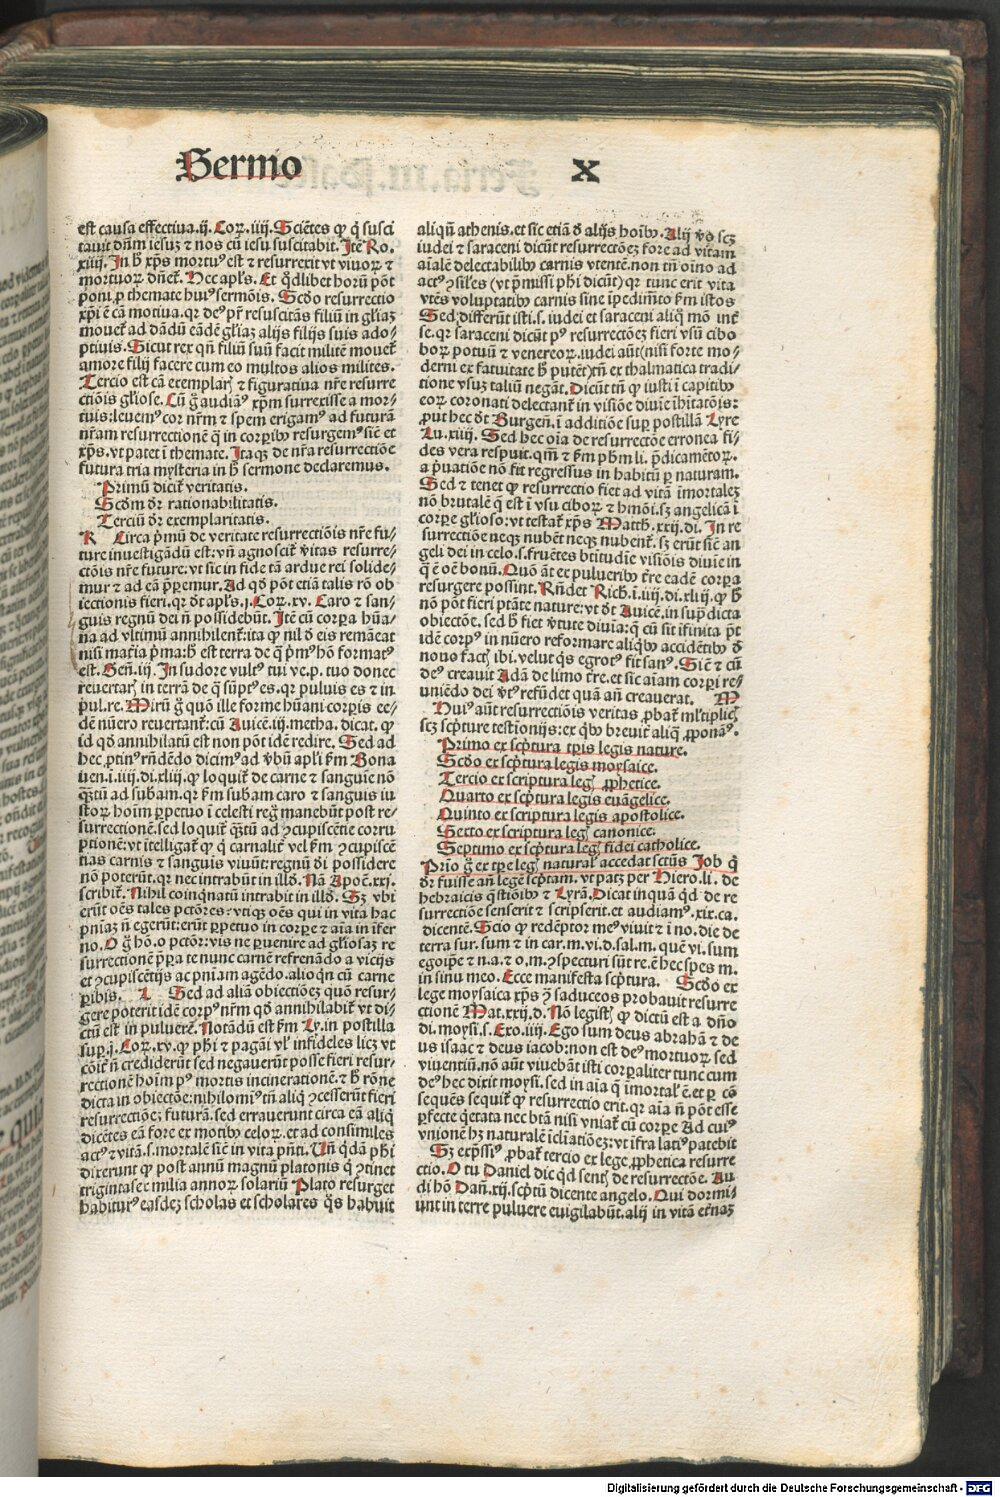 Sermo X
est causa effectiua.ij. Coꝝ.iiij. Sciẽtes ꝙ q̇ susci
tauit dñm iesuꝫ ⁊ nos cũ iesu suscitabit. Itẽ Ro.
xiiij. In h̾ xp̃s mortu⁹ est ⁊ resurrexit vt viuoꝝ ⁊
mortuoꝝ dñet᷑. Hec apl̃s. Et q̇dlibet hoꝝ põt
poni ꝓ themate hui⁹ sermõis. Scďo resurrectio
xp̃i ẽ cã motiua. qꝛ de⁹ pr̃ resuscitãs filiũ in gl̃iaꝫ
mouet᷑ ad dãdũ eãdẽ gl̃iaꝫ alijs filijs suis ado⸗
ptiuis. Sicut rex qñ filiũ suũ facit militẽ mouet᷑
amore filij facere cum eo multos alios milites.
Tercio est cã exemplarꝭ ⁊ figuratiua nr̃e resurre
ctiõis gl̃iose. Cũ g̊ audiam⁹ xp̃m surrexisse a mor⸗
tuis: leuem⁹ cor nr̃m ⁊ spem erigam⁹ ad futurã
nr̃am resurrectionẽ q̃ in corꝑibꝰ resurgem⁹ sic̃ et
xp̃s. vt patet ĩ themate. Itaqꝫ de nr̃a resurrectiõe
futura tria mysteria in h̾ sermone declaremus.
Primũ dicit᷑ veritatis.
Scďm ďr rationabilitatis.
Terciũ ďr exemplaritatis.
K Circa pͥmũ de veritate resurrectiõis nr̃e fu⸗
ture inuestigãdũ est: vñ agnoscit᷑ v̾itas resurre⸗
ctõis nr̃e future. vt sic in fide tã ardue rei solide⸗
mur ⁊ ad eã p̃ꝑemur. Ad qď põt etiã talis rõ ob
iectionis fieri. qꝛ ďt apl̃s.j. Coꝝ.xv. Caro ⁊ san⸗
guis regnũ dei ñ possidebũt. Itẽ cũ corꝑa hũa⸗
na ad vltimũ annihilent᷑: ita ꝙ nil ď eis remãeat
nisi mat̃ia pͥma: h̾ est terra de q̃ pͥm⁹ hõ format⁹
est. Geñ.iij. In sudore vult⁹ tui ve. p. tuo donec
reuertarꝭ in terrã de q̃ sũpt⁹ es. qꝛ puluis es ⁊ in
pul. re. Mirũ g̊ quõ ille forme hũani corꝑis ee⸗
dẽ nũero reuertant᷑: cũ Auicẽ.iij. metha. dicat. ꝙ
id qď annihilatũ est non põt idẽ redire. Sed ad
hec ptin⁹ rñdẽdo dicim⁹ ad v̾bũ apl̃i ẜm Bona
uen.i.iiij.di.xliij. ꝙ loquit᷑ de carne ⁊ sanguĩe nõ
q̃ꝫtũ ad subam. qꝛ ẜm subam caro ⁊ sanguis iu
stoꝝ hoĩm ꝑpetuo ĩ celesti reg̃ manebũt post re⸗
surrectionẽ. sed loquit᷑ q̃ꝫtũ ad ꝯcupiscẽtie corru
ptionẽ: vt ĩtelligat᷑ ꝙ q̇ carnalit᷑ vel ẜm ꝯcupiscẽ
tias carnis ⁊ sanguis viuũt: regnũ ďi possidere
nõ poterũt. qꝛ nec intrabũt in illď. Nã Apoc̃.xxi.
scribit᷑. Nihil coinq̇natũ intrabit in illď. Sꝫ vbi
erũt oẽs tales pctõres: vtiqꝫ oẽs qui in vita hac
pniaꝫ ñ egerũt: erũt ꝑpetuo in corꝑe ⁊ aĩa in ĩfer
no. O g̊ hõ. o pctõr: vis ne ꝑuenire ad gl̃iosaꝫ re
surrectionẽ p̃ꝑa te nunc carnẽ refrenãdo a vicijs
et ꝯcupiscẽtijs ac pniam agẽdo. alioqn cũ carne
ꝑibis. L Sed ad aliã obiectiõeꝫ quõ resur⸗
gere poterit idẽ corp⁹ nr̃m qď annihilabit᷑ vt di⸗
ctũ est in puluerẽ. Notãdũ est ẜm Ly. in postilla
suꝑ.j. Coꝝ.xv. ꝙ ph̃i ⁊ pagãi vl̾ infideles licꝫ vt
cõit᷑ ñ crediderũt sed negauerũt posse fieri resur⸗
rectionẽ hoĩm p⁹ mortis incinerationẽ. ⁊ h̾ rõne
dicta in obiectõe: nihilomi⁹ tñ aliq̃ ꝯcesserũt fieri
resurrectiõeꝫ futurã. sed errauerunt circa eã aliq̇
dicẽtes eã fore ex motibꝰ celoꝝ. et ad consimiles
act⁹ ⁊ vitã. s. mortalẽ sic̃ in vita pñti. Uñ q̇dã ph̃i
dixerunt ꝙ post annũ magnũ platonis q̇ ꝯtinet
trigintasex milia annoꝝ solariũ Plato resurget
habitur⁹ easdeꝫ scholas et scholares q̃s habuit
aliqñ athenis. et sic etiã ď alijs hoĩbꝰ. Alij v̾o scꝫ
iudei ⁊ saraceni dicũt resurrectõeꝫ fore ad vitam
aĩalẽ delectabilibꝰ carnis vtentẽ. non tñ oĩno ad
act⁹ ꝯsĩles (vt p̃missi ph̃i dicũt) qꝛ tunc erit vita
vtẽs voluptatibꝰ carnis sine ĩpedimẽto ẜm istos
Sed differũt isti. s. iudei et saraceni aliq̃ mõ int᷑
se. qꝛ saraceni dicũt p⁹ resurrectõeꝫ fieri vsũ cibo
boꝝ potuũ ⁊ venereoꝝ. iudei aũt (nisi forte mo⸗
derni ex fatuitate h̾ putẽt) tñ ex thalmatica tradi⸗
tione vsuꝫ taliũ negãt. Dicũt tñ ꝙ iusti ĩ capitibꝰ
eoꝝ coronati delectant᷑ in visiõe diuĩe ĩhitatõis:
ꝓut hec ďt Burgeñ. ĩ additiõe suꝑ postillã Lyre
Lu.xiiij. Sed hec oĩa de resurrectõe erronea fi⸗
des vera respuit. qm̃ ⁊ ẜm ph̃m li. p̃dicamẽtoꝝ.
a p̃uatiõe nõ fit regressus in habitũ ꝑ naturam.
Sed ⁊ tenet ꝙ resurrectio fiet ad vitã ĩmortaleꝫ
nõ brutalẽ q̃ est ĩ vsu ciboꝝ ⁊ hmõi. sꝫ angelicã ĩ
corꝑe gl̃ioso: vt testat᷑ xp̃s Matth.xxij.di. In re
surrectiõe neqꝫ nubẽt neqꝫ nubent᷑. sꝫ erũt sic̃ an
geli dei in celo. s. fruẽtes btitudĩe visiõis diuĩe in
q̃ ẽ oẽ bonũ. Quõ ãt ex pulueribꝰ tr̃e eadẽ corꝑa
resurgere possint. Rñdet Rich.ĩ.iiij.di.xliij. ꝙ h̾
nõ põt fieri ptãte nature: vt ďt Auicẽ. in sup̃dicta
obiectõe. sed h̾ fiet v̾tute diuĩa: q̃ cũ sit ĩfinita p̃t
idẽ corp⁹ in nũero reformare aliq̇bꝰ accidẽtibꝰ ď
nouo factꝭ ibi. velut q̇s egrot⁹ fit san⁹. Sic̃ ⁊ cũ
de⁹ creauit Adã de limo tr̃e. et sic aĩam corꝑi re⸗
uniẽdo dei v̾t⁹ refũdet quã añ creauerat. M
Hui⁹ aũt resurrectiõis veritas ꝓbat᷑ ml̾tiplicꝭ
scꝫ scp̃ture testĩonijs: ex q̇bꝰ breuit᷑ aliq̃ ꝓponã⁹.
Primo ex scp̃tura tp̃is legis nature.
Scďo ex scp̃tura legis moysaice.
Tercio ex scriptura legꝭ ꝓphetice.
Quarto ex scp̃tura legis euãgelice.
Quinto ex scriptura legis apostolice.
Sexto ex scriptura legꝭ canonice.
Septimo ex scp̃tura legꝭ fidei catholice.
Prĩo g̊ ex tp̃e legꝭ naturalꝭ accedat sctũs Job q̇
ďr fuisse añ legẽ scp̃tam. vt patꝫ per Hiero. li. de
hebraicis q̃stiõibꝰ ⁊ Lyrã. Dicat inquã q̇d de re
surrectiõe senserit ⁊ scripserit. et audiam⁹.xix.ca.
dicentẽ. Scio ꝙ redẽptor me⁹ viuit ⁊ ĩ no. die de
terra sur. sum ⁊ in car. m. vi. d. sal. m. quẽ vi. sum
egoip̃e ⁊ n. a. ⁊ o. m. ꝯspecturi sũt re. ẽ hec spes m.
in sinu meo. Ecce manifesta scp̃tura. Scďo ex
lege moysaica xp̃s ꝯ̃ saduceos probauit resurre
ctionẽ Mat.xxij.d. Nõ legistꝭ ꝙ dictũ est a dño
di. moysi. s. Exo.iiij. Ego sum deus abrahã ⁊ de
us isaac ⁊ deus iacob: non est de⁹ mortuoꝝ sed
viuentiũ. nõ aũt viuebãt isti corꝑaliter tunc cum
de⁹ hec dixit moysi. sed in aĩa q̃ ĩmortalꝭ ẽ. et ꝑ cõ
sequẽs sequit᷑ ꝙ resurrectio erit. qꝛ aĩa ñ põt esse
ꝑfecte q̇etata nec btã nisi vniat᷑ cũ corꝑe Ad cui⁹
vnionẽ hꝫ naturalẽ ĩcliatiõeꝫ: vt ĩfra lati⁹ patebit
Sꝫ exp̃ssi⁹ ꝓbat᷑ tercio ex lege ꝓphetica resurre
ctio. O tu Daniel dic q̇d sentꝭ de resurrectõe. Au
di hõ Dañ.xij. scp̃tũ dicente angelo. Qui dormi⸗
unt in terre puluere euigilabũt. alij in vitã et̾naꝫ
Digitalisierung gefördert durch die Deutsche Forschungsgemeinschaft - DFG